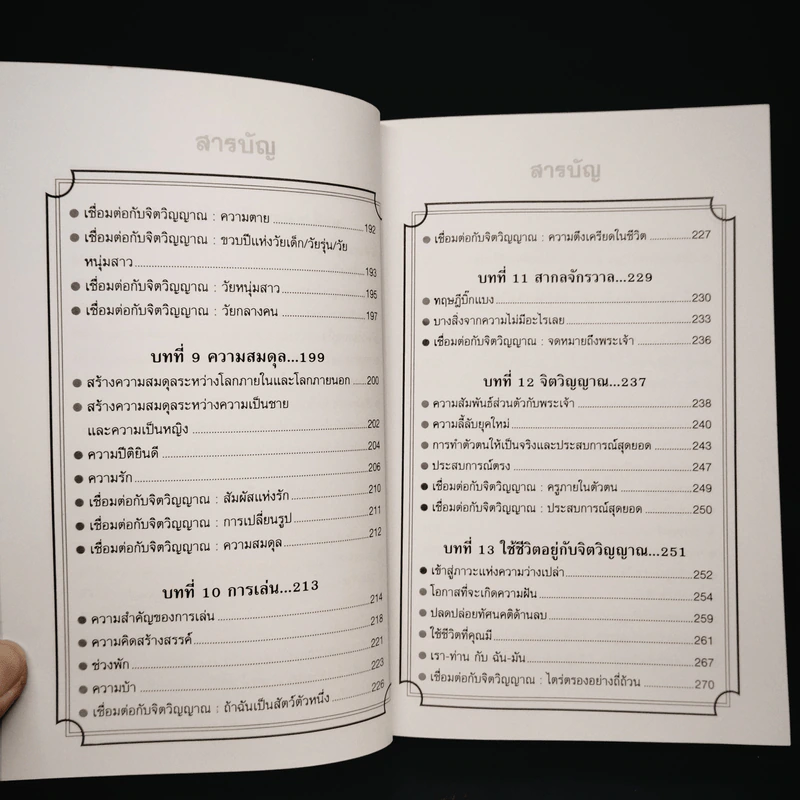 สารบัญ
● เชื่อมต่อกับจิตวิญญาณ : ความตาย ........ 192
● เชื่อมต่อกับจิตวิญญาณ : ขวบปีแห่งวัยเด็ก/วัยรุ่น/วัย
หนุ่มสาว ........ 193
● เชื่อมต่อกับจิตวิญญาณ : วัยหนุ่มสาว ........ 195
● เชื่อมต่อกับจิตวิญญาณ : วัยกลางคน ........ 197
บทที่ 9 ความสมดุล...199
● สร้างความสมดุลระหว่างโลกภายในและโลกภายนอก ...... 200
● สร้างความสมดุลระหว่างความเป็นชาย
และความเป็นหญิง ........ 202
● ความปีติยินดี ........ 204
● ความรัก ........ 206
● เชื่อมต่อกับจิตวิญญาณ : สัมผัสแห่งรัก ........ 210
● เชื่อมต่อกับจิตวิญญาณ : การเปลี่ยนรูป ........ 211
● เชื่อมต่อกับจิตวิญญาณ : ความสมดุล ........ 212
บทที่ 10 การเล่น...213
● ความสำคัญของการเล่น ........ 214
● ความคิดสร้างสรรค์ ........ 218
● ช่วงพัก ........ 221
● ความบ้า ........ 223
● เชื่อมต่อกับจิตวิญญาณ : ถ้าฉันเป็นสัตว์ตัวหนึ่ง ........ 226
สารบัญ
● เชื่อมต่อกับจิตวิญญาณ : ความตึงเครียดในชีวิต ........ 227
บทที่ 11 สากลจักรวาล...229
● ทฤษฎีบิ๊กแบง ........ 230
● บางสิ่งจากความไม่มีอะไรเลย ........ 233
● เชื่อมต่อกับจิตวิญญาณ : จดหมายถึงพระเจ้า ........ 236
บทที่ 12 จิตวิญญาณ...237
● ความสัมพันธ์ส่วนตัวกับพระเจ้า ........ 238
● ความลี้ลับยุคใหม่ ........ 240
● การทำตัวตนให้เป็นจริงและประสบการณ์สุดยอด ........ 243
● ประสบการณ์ตรง ........ 247
● เชื่อมต่อกับจิตวิญญาณ : ครูภายในตัวตน ........ 249
● เชื่อมต่อกับจิตวิญญาณ : ประสบการณ์สุดยอด ........ 250
บทที่ 13 ใช้ชีวิตอยู่กับจิตวิญญาณ...251
● เข้าสู่ภาวะแห่งความว่างเปล่า ........ 252
● โอกาสที่จะเกิดความฝัน ........ 254
● ปลดปล่อยทัศนคติด้านลบ ........ 259
● ใช้ชีวิตที่คุณมี ........ 261
● เรา-ท่าน กับ ฉัน-มัน ........ 267
● เชื่อมต่อกับจิตวิญญาณ : ไตร่ตรองอย่างถี่ถ้วน ........ 270